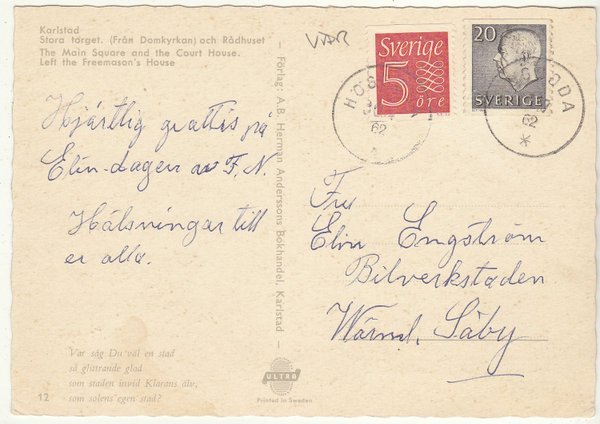 Karlstad
Stora torget. (Från Domkyrkan) och Rådhuset
The Main Square and the Court House.
Left the Freemason's House
Hjärtlig grattis på
Elin-dagen av F. N.
Hälsningar till
er alla.
Var såg Du väl en stad
så glittrande glad
som staden invid Klarans älv,
som solens egen stad?
12
– Förlag: A.B. Herman Anderssons Bokhandel, Karlstad –
ULTRA
Printed in Sweden
Sverige
5
öre
20
SVERIGE
62
62
Fru
Elin Engström
Bilverkstaden
Värml. Säby